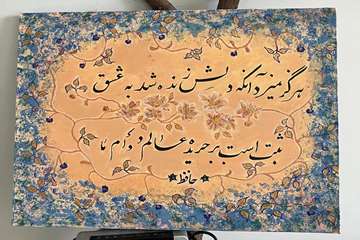 هرگز نمیرد آنکه دلش زنده شد به عشق
ثبت است بر جریده عالم دوام ما
حافظ